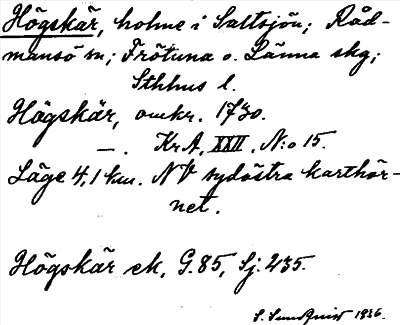 Högskär, holme i Saltsjön; Råd-
mansö sn; Frötuna o. Länna skg;
Sthlms l.
Högskär, omkr. 1730.
—. Kr.A, XXII, N:o 15.
Läge 4,1 km. NV sydöstra karthör-
net.
Högskär ek, G.85, Sj. 235.
S. Sundquist 1936.